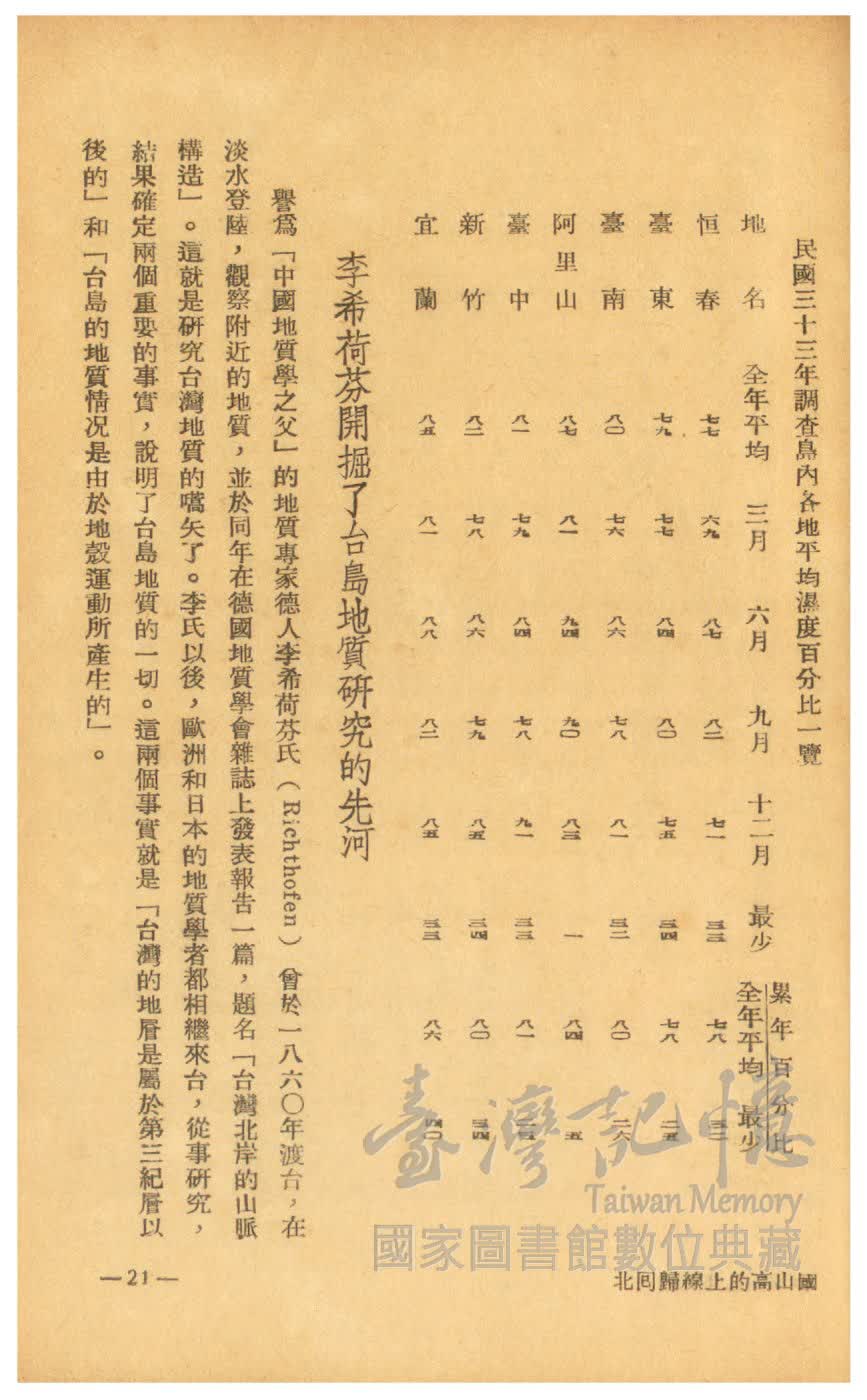 民國三十三年調查島內各地平均濕度百分比一覽
地名 全年平均 三月 六月 九月 十二月 最少 累年百分比 全年平均 最少
恒春 七七 六九 八七 八二 七一 三三 七八 三二
臺東 七九 七七 八四 八〇 七五 三四 七八 二五
臺南 八〇 七六 八六 七八 八一 三二 八〇 二六
阿里山 八七 八一 九四 九〇 八三 一 八四 五
臺中 八一 七九 八四 七八 九一 三三 八一
新竹 八二 七八 八六 七九 八五 三四 八〇 三四
宜蘭 八五 八一 八八 八二 八五 三三 八六 四〇
李希荷芬開掘了台島地質硏究的先河
譽爲「中國地質學之父」的地質專家德人李希荷芬氏(Richthofen)曾於一八六〇年渡台,在
淡水登陸,觀察附近的地質,並於同年在德國地質學會雜誌上發表報告一篇,題名「台灣北岸的山脈
構造」。這就是硏究台灣地質的嚆矢了。李氏以後,歐洲和日本的地質學者都相繼來台,從事硏究,
結果確定兩個重要的事實,說明了台島地質的一切。這兩個事實就是「台灣的地層是屬於第三紀層以
後的」和「台島的地質情况是由於地殼運動所產生的」。
—21—
國山高的上線歸囘北
臺灣記憶
Taiwan Memory
國家圖書館數位典藏